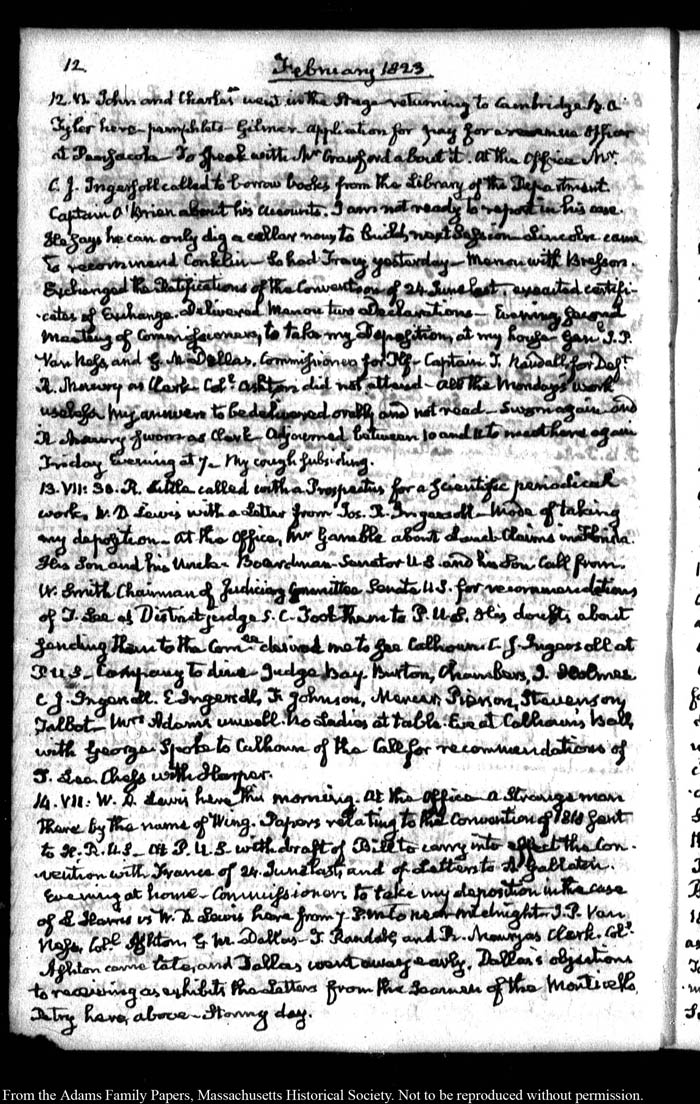 12. February 1823.
12. VI. John and Charles went in the Stage returning to Cambridge.
Tyler here pamphlets Gilmer application for pay for a revenue officer
at Pensacola To speak with Mr Crawford about it. At the Office Mr.
C. J. Ingersoll called to borrow books from the Library of the Department.
Captain O'Brien about his accounts. I am not ready to report in his case.
He says he can only dig a cellar now, to build next Session Lincoln came
to recommend Conklin So had Tracy yesterday Menou with Bresson.
Exchanged the Ratifications of the Convention of 24 June last, executed certifi-
cates of Exchange. Delivered Menou two Declarations Evening Second
Meeting of Commissioners, to take my Deposition, at my house Genl J. P.
Van Ness, and G. M Dallas, Commissioners for Plf Captain T. Randall, for Deft
R. Maury as Clerk Coll. Ashton did not attend all the Mondays work
useless My answers to be delivered orally and not read Sworn again and
R Maury sworn as Clerk Adjourned between 10 and 11 to meet here again
Friday Evening at 7 My cough subsiding.
13. VII: 30. R. Little called with a Prospectus for a scientific periodical
work, W. D Lewis with a Letter from Jos. R. Ingersoll Mode of taking
my deposition At the Office, Mr Gamble about Land Claims in Florida.
His Son and his Uncle Boardman Senator U.S. and his Son Call from
W. Smith Chairman of Judiciary Committee Senate U.S. for recommendations
of T. Lee as District judge S. C. Took them to P. U. S. His doubts about
sending them to the Comee desired me to see Calhoun C J. Ingersoll at
P U S Company to dine Judge Bay Burton, Chambers, J. Holmes
C J. Ingersoll, E Ingersoll, F. Johnson, Mercer, Pierson, Stevenson,
Talbot Mrs Adams unwell. No Ladies at table. Eve at Calhoun's Ball,
with George Spoke to Calhoun of the Call for recommendations of
T. Lee Chess with Harper.
14. VII: W. D. Lewis here this morning. At the Office a Strange man
there by the name of Wing. Papers relating to the Convention of 1818 sent
to H. R. U.S At P. U. S. with draft of Bill to carry into effect the Con-
vention with France of 24. June last, and of Letters to A Gallatin.
Evening at home Commissioners to take my deposition in the case
of L Harris vs W. D. Lewis here from 7 P.M to near midnight J. P. Van
Ness, Coll Ashton, G M. Dallas T. Randall, and R. Maury as Clerk. Coll
Ashton came late, and Dallas went away early. Dallas's objections
to receiving as exhibits the Letters from the Seamen of the Monticello.
Petry here, above Stormy day.
From the Adams Family Papers, Massachusetts Historical Society. Not to be reproduced without permission.